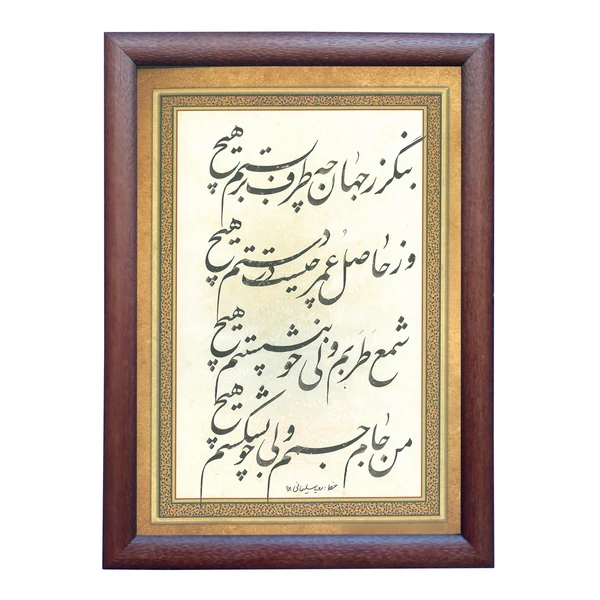 بنگر ز جهان چه طرف بربستم هیچ
وز حاصل عمر چیست در دستم هیچ
شمع طربم ولی چو بنشستم هیچ
من جام جمم ولی چو بشکستم هیچ
خط: سلیمانی ۹۸